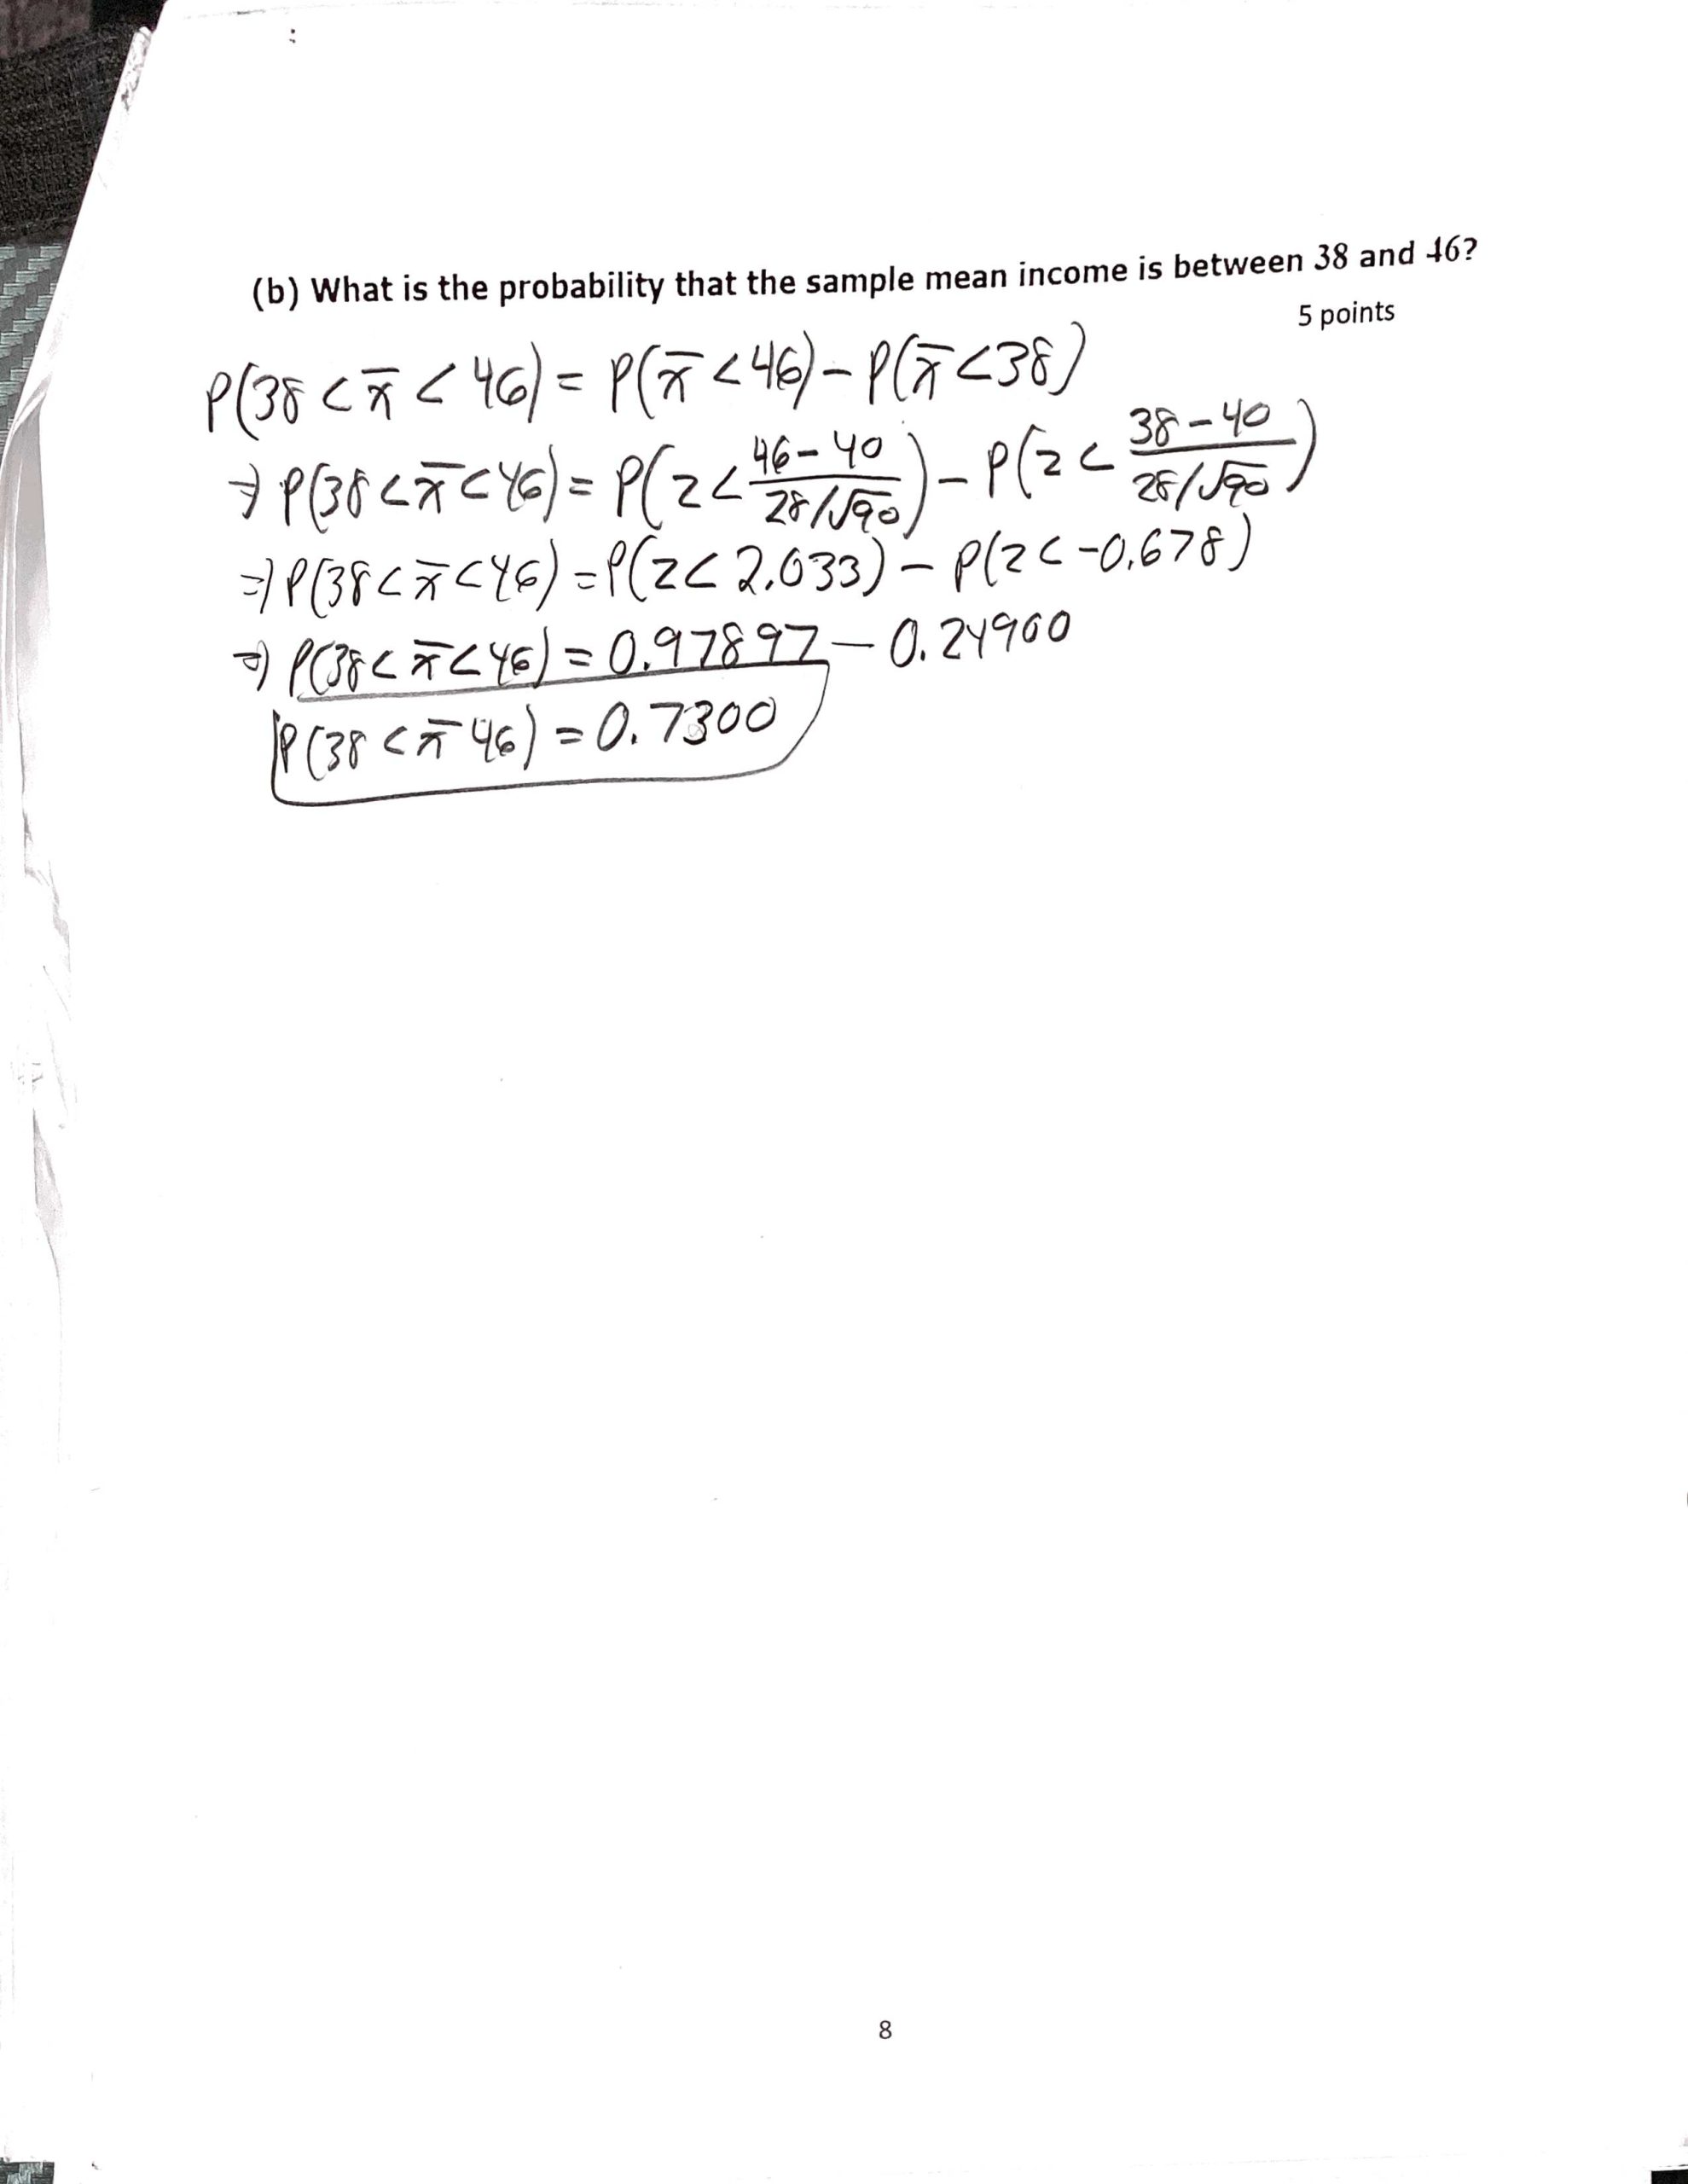 (b) What is the probability that the sample mean income is between 38 and 46?
5 points
P(38 < x̄ < 46) = P(x̄ < 46) - P(x̄ < 38)
⇒ P(38 < x̄ < 46) = P(z < (46-40)/(28/√90)) - P(z < (38-40)/(28/√90))
⇒ P(38 < x̄ < 46) = P(z < 2.033) - P(z < -0.678)
⇒ P(38 < x̄ < 46) = 0.97897 - 0.24900
P(38 < x̄ 46) = 0.7300
8